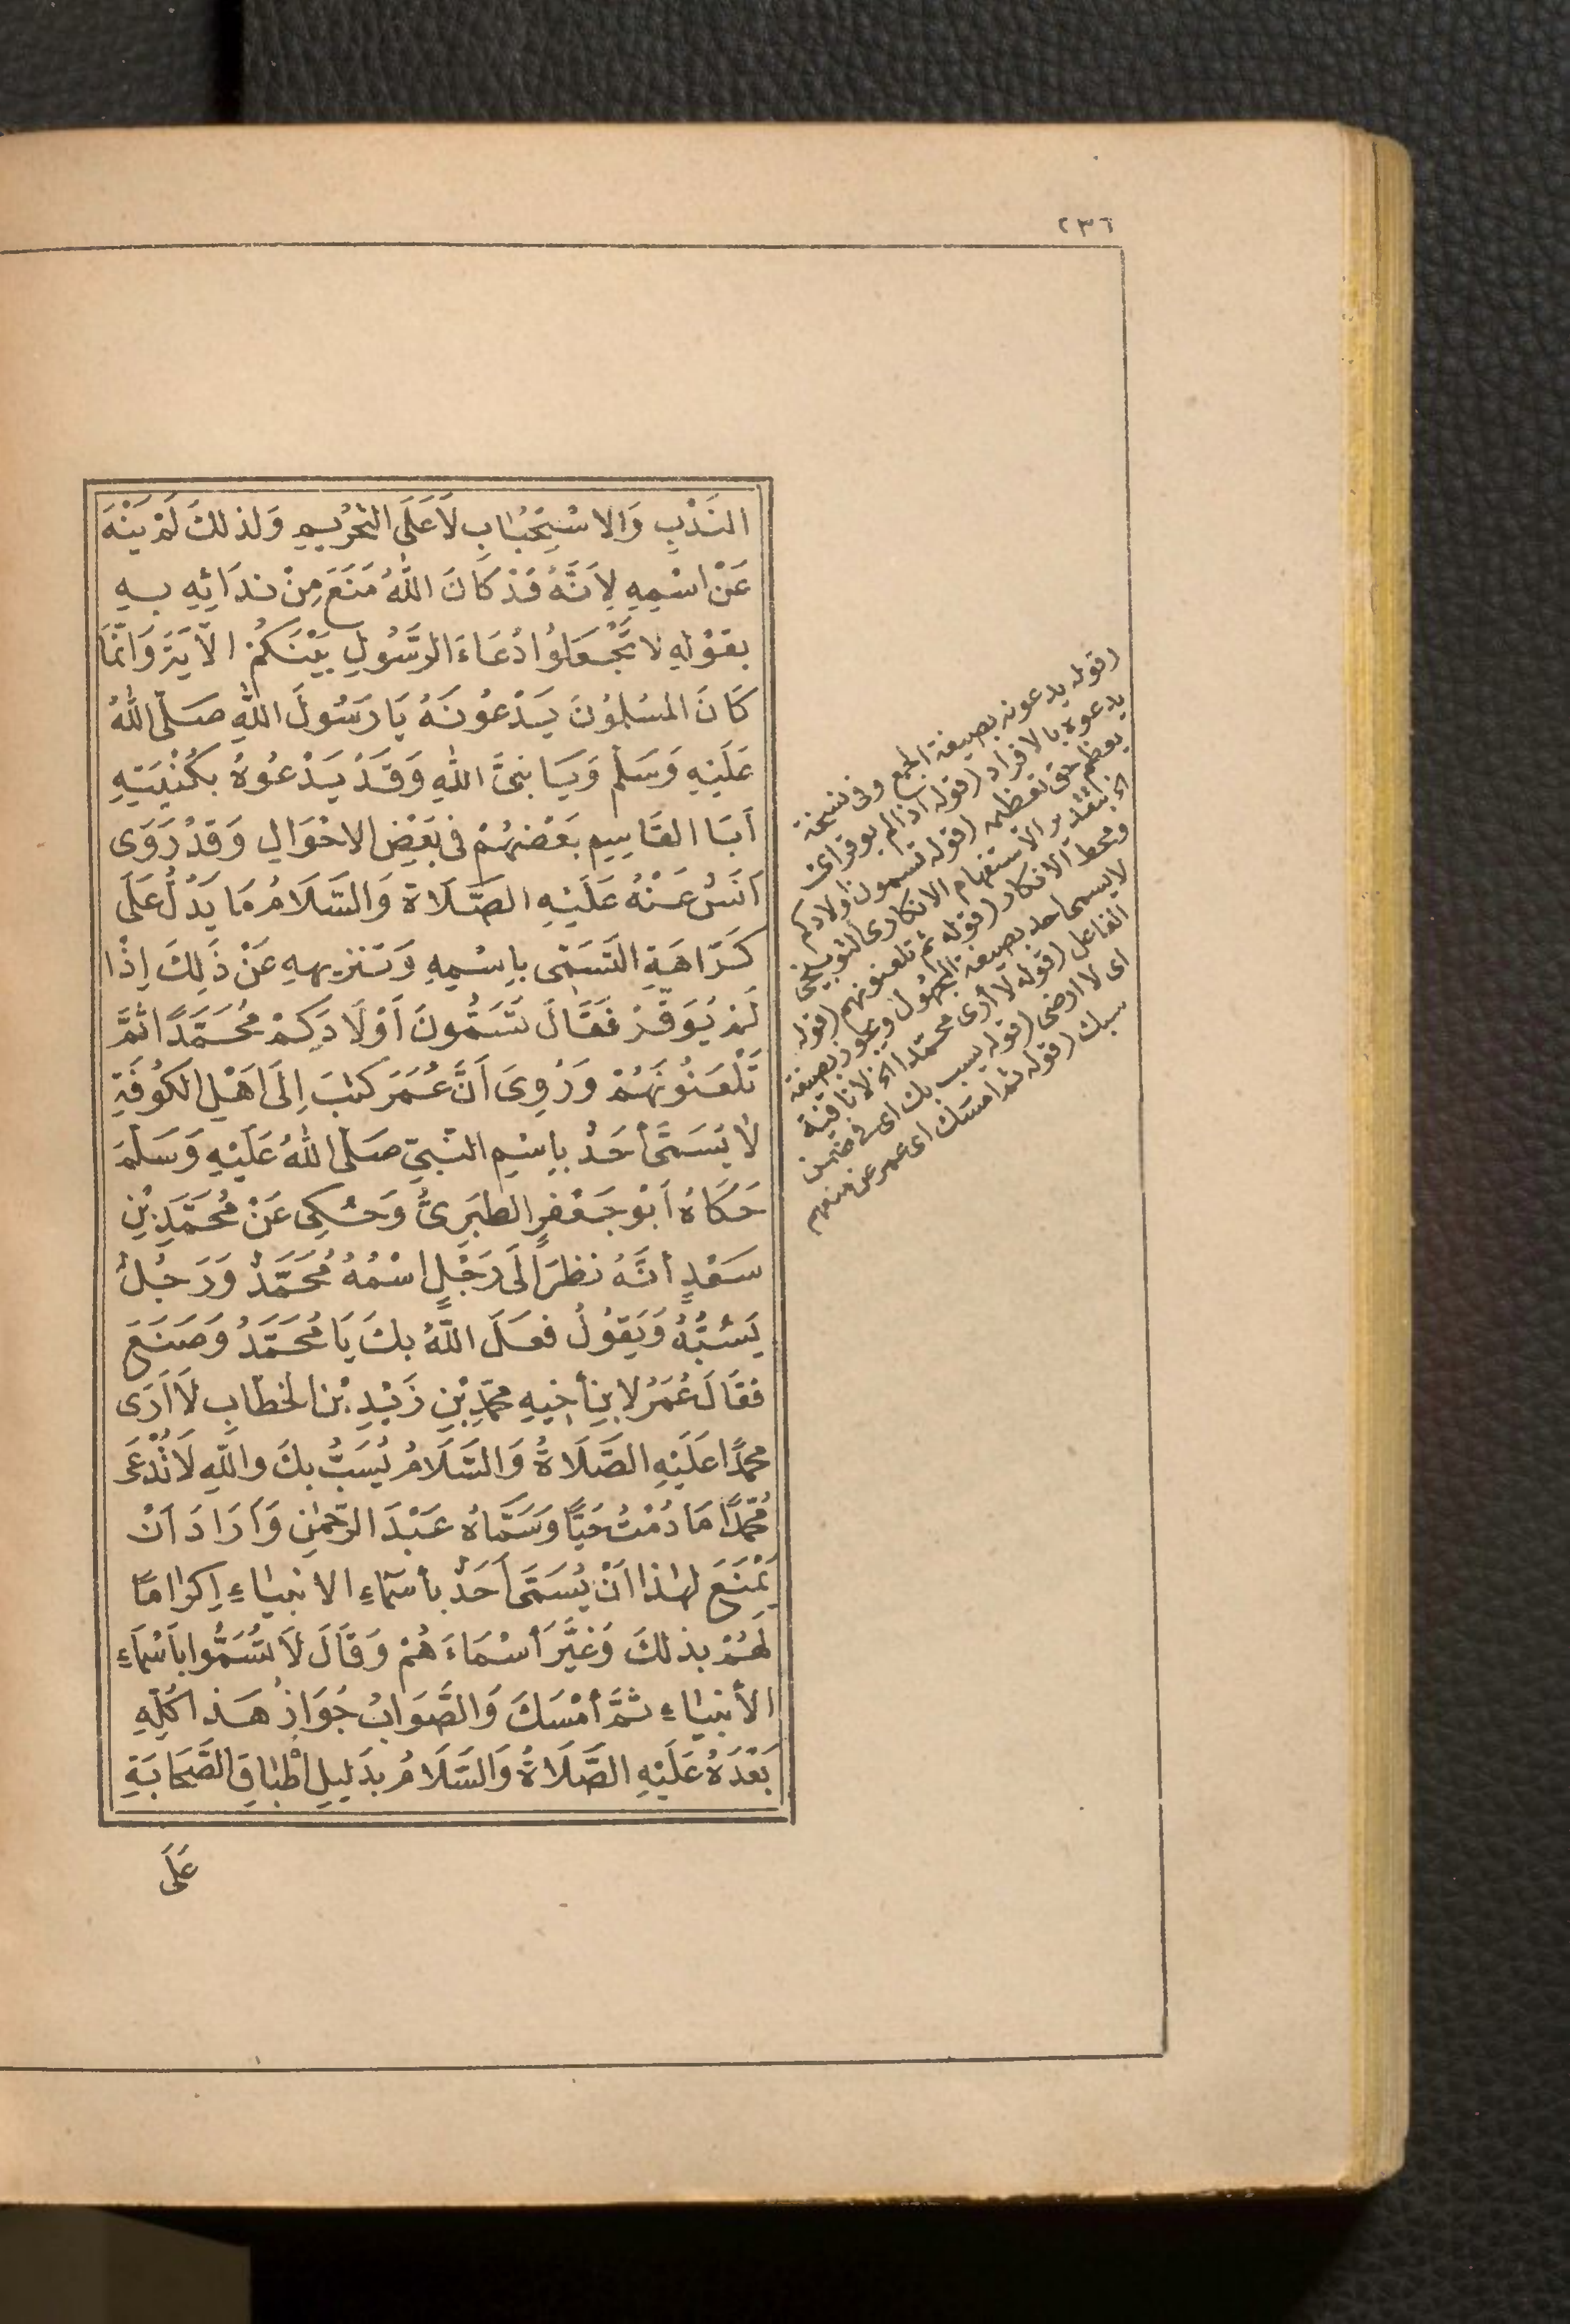 ٢٣٦
النَّدْبِ وَالاسْتِحْبَابِ لاَ عَلَى التَّحْرِيمِ وَلذلكَ لَمْ يَنْهَ
عَنْ اسْمِهِ لِأَنَّهُ قَدْ كَانَ اللّٰهُ مَنَعَ مِنْ نِدَائِهِ بِهِ
بِقَوْلِهِ لاَ تَجْعَلُوا دُعَاءَ الرَّسُولِ بَيْنَكُمْ الآيَةَ وَإنَّمَا
كَانَ المُسْلِمُونَ يَدْعُونَهُ يَا رَسُولَ اللّٰهِ صَلَّى اللّٰهُ
عَلَيْهِ وَسَلَّم وَيَا نَبِىَّ اللّٰهِ وَقَدْ يَدْعُوهُ بِكُنْيَتِهِ
أَبَا القَاسِمِ بَعْضُهُمْ فِى بَعْضِ الاحْوَالِ وَقَدْ رَوَى
أَنَسٌ عَنْهُ عَلَيْهِ الصَّلَاةُ وَالسَّلَامُ مَا يَدُلُّ عَلَى
كَرَاهَةِ التَّسَمِّى بِاسْمِهِ وَتَنْزِيهِهِ عَنْ ذَلِكَ إِذَا
لَمْ يُوَقَّرْ فَقَالَ تُسَمُّونَ أَوْلَادَكُمْ مُحَمَّدًا ثُمَّ
تَلْعَنُونَهُمْ وَرُوِىَ أَنَّ عُمَرَ كَتَبَ إِلَى أَهْلِ الكُوفَةِ
لَا يُسَمَّى أَحَدٌ بِاسْمِ النَّبِىِّ صَلَّى اللّٰهُ عَلَيْهِ وَسَلَّمَ
حَكَاهُ أَبُو جَعْفَرٍ الطَّبَرِىُّ وَحُكِىَ عَنْ مُحَمَّدِ بْنِ
سَعْدٍ أنَّهُ نَظَرَ إلَى رَجُلٍ اسْمُهُ مُحَمَّدٌ وَرَجُلٌ
يَسُبُّهُ وَيَقُولُ فَعَلَ اللّٰهُ بِكَ يَا مُحَمَّدُ وَصَنَعَ
فَقَالَ عُمَرُ لِابْنِ أَخِيهِ مُحَمَّدِ بْنِ زَيْدِ بْنِ الخَطَّابِ لَا أَرَى
مُحَمَّدًا عَلَيْهِ الصَّلَاةُ وَالسَّلَامُ يُسَبُّ بِكَ وَاللّٰهِ لَا تُدْعَى
مُحَمَّدًا مَا دُمْتُ حَيًّا وَسَمَّاهُ عَبْدَ الرَّحْمٰنِ وَأَرَادَ أَنْ
يَمْنَعَ لِهٰذَا أَنْ يُسَمَّى أَحَدٌ بِأَسْمَاءِ الأنْبِيَاءِ إِكْرَامًا
لَهُمْ بِذلكَ وَغَيَّرَ أَسْمَاءَهُمْ وَقَالَ لَا تُسَمُّوا بِأَسْمَاءِ
الأَنْبِيَاءِ ثُمَّ أَمْسَكَ وَالصَّوَابُ جَوَازُ هَذَا كُلِّهِ
بَعْدَهُ عَلَيْهِ الصَّلَاةُ وَالسَّلَامُ بِدَلِيلِ إِطْبَاقِ الصَّحَابَةِ
عَلَى
(قوله يدعونه بصيغة الجمع وفى نسخة
يدعوه بالافراد (قوله اذا لم يوقر اى
يعظم حق تعظيمه (قوله تسمون اولادكم
الخ بتقدير الاستفهام الانكارى التوبيخى
ومحط الانكار (قوله ثم تلعنونهم (قوله
لا يسمى احد بصيغة المجهول ويجوز بصيغة
الفاعل (قوله لا أرى محمدا الخ لا نافية
اى لا ارضى (قوله يسب بك اى فى ضمن
سبك (قوله ثم امسك اى عمر عن منعهم